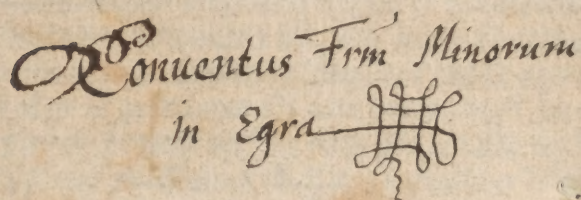 Conuentus Frm̄ Minorum
in Egra